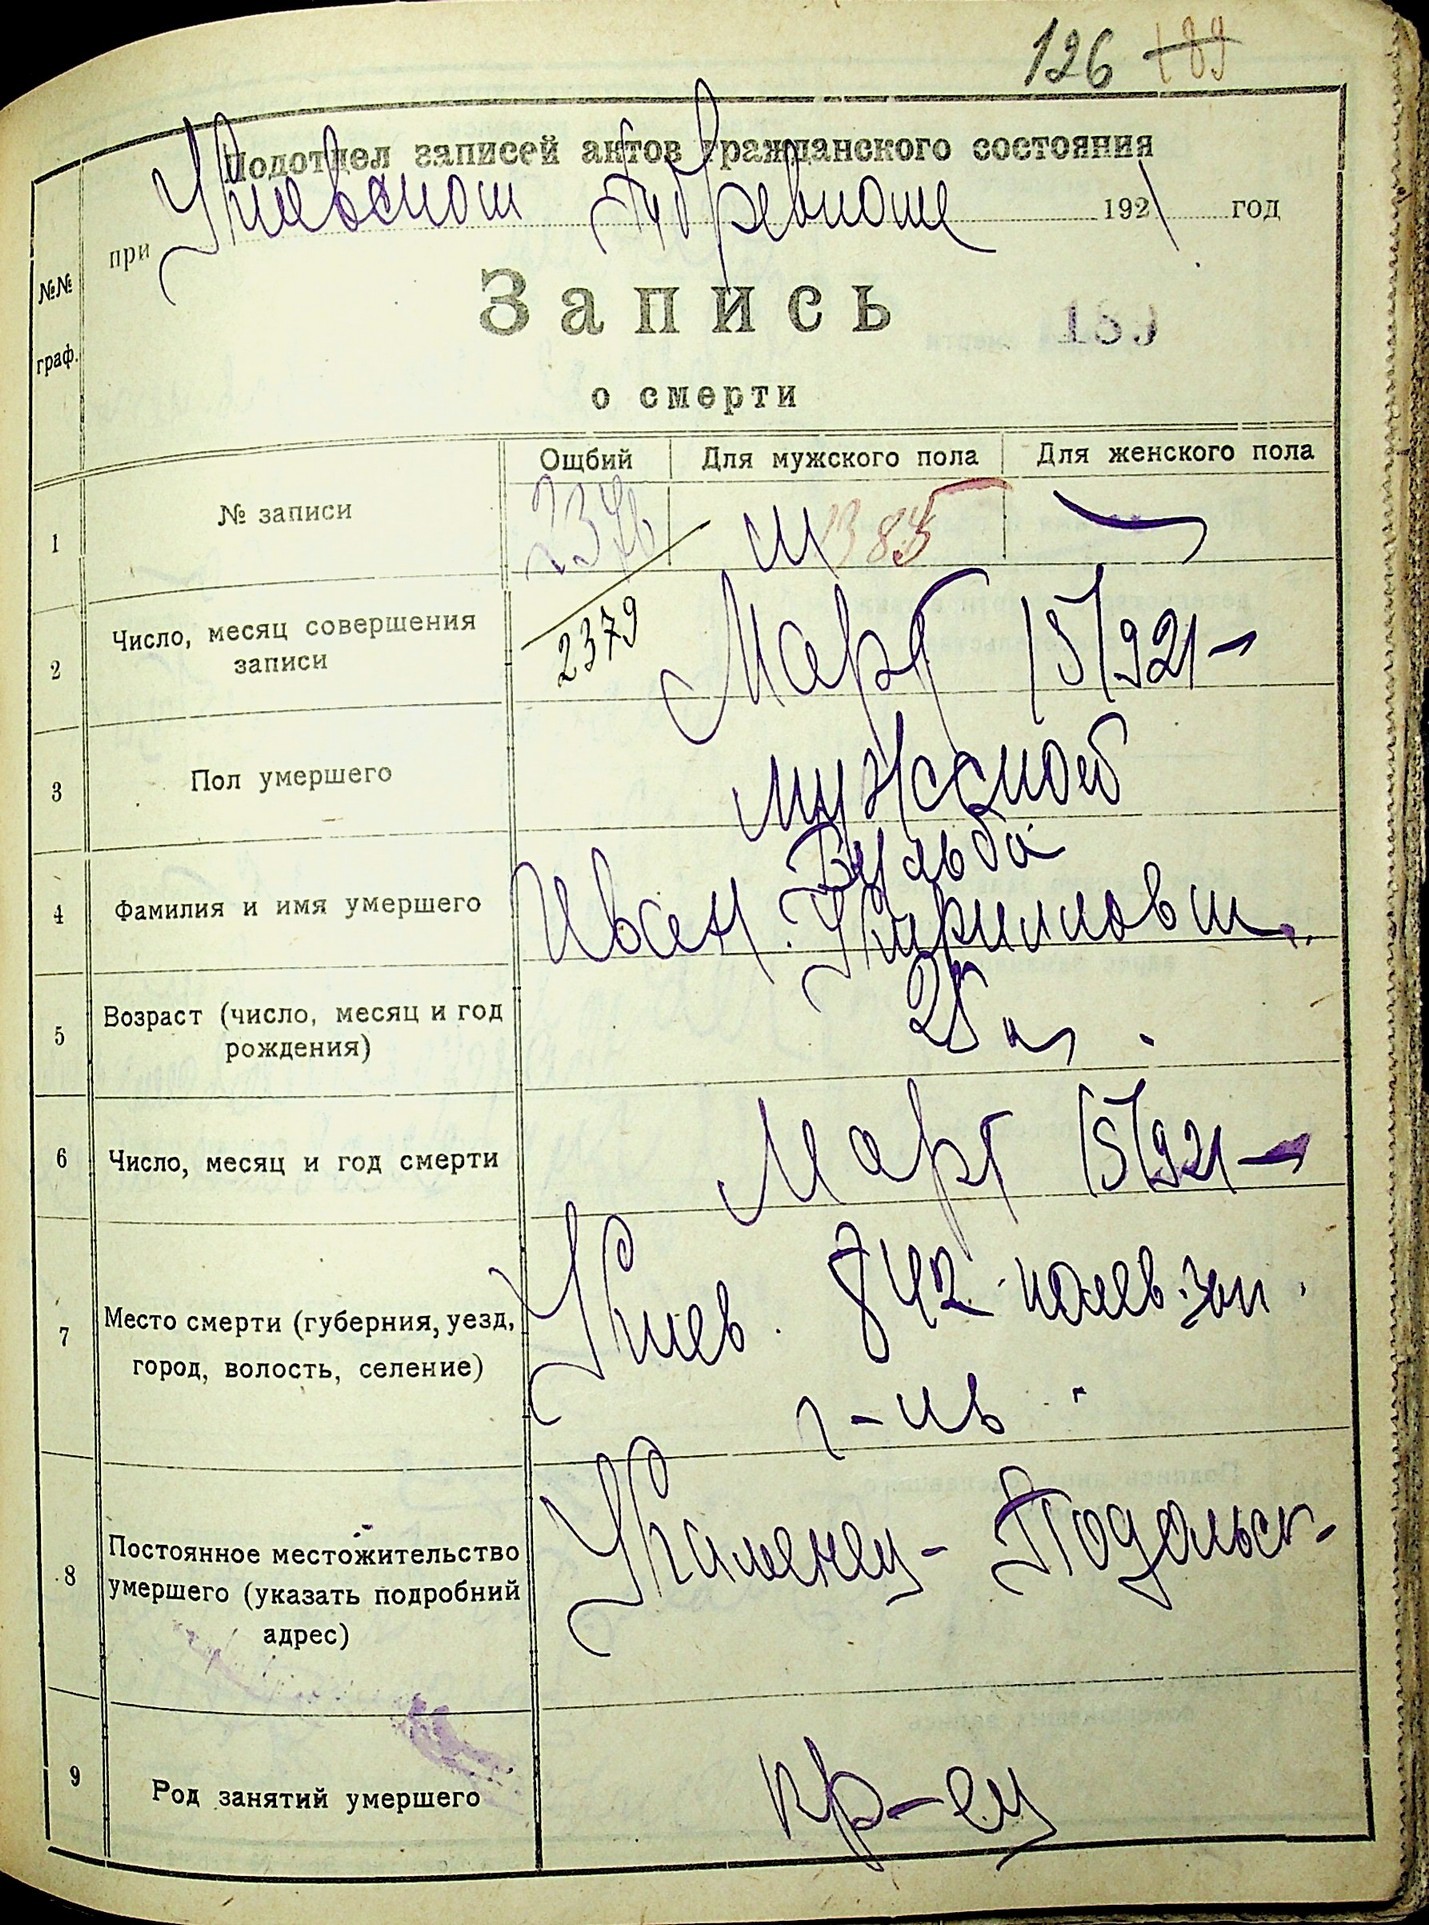 126 189
Подотдел записей актов гражданского состояния
при Киевском Губревкоме 1921 год
Запись
189
о смерти
№№
граф.
Ощбий Для мужского пола Для женского пола
1 № записи 2376 м 1385 —
2379
2 Число, месяц совершения Март 15/921 —
записи
3 Пол умершего мужской
Вульба
4 Фамилия и имя умершего Иван Кириллович
5 Возраст (число, месяц и год 25 л.
рождения)
6 Число, месяц и год смерти Март 15/921 —
7 Место смерти (губерния, уезд, Киев. 842 полев. зап.
город, волость, селение) г-ль
8 Постоянное местожительство Каменец-Подольск-
умершего (указать подробний
адрес)
9 Род занятий умершего кр-ец